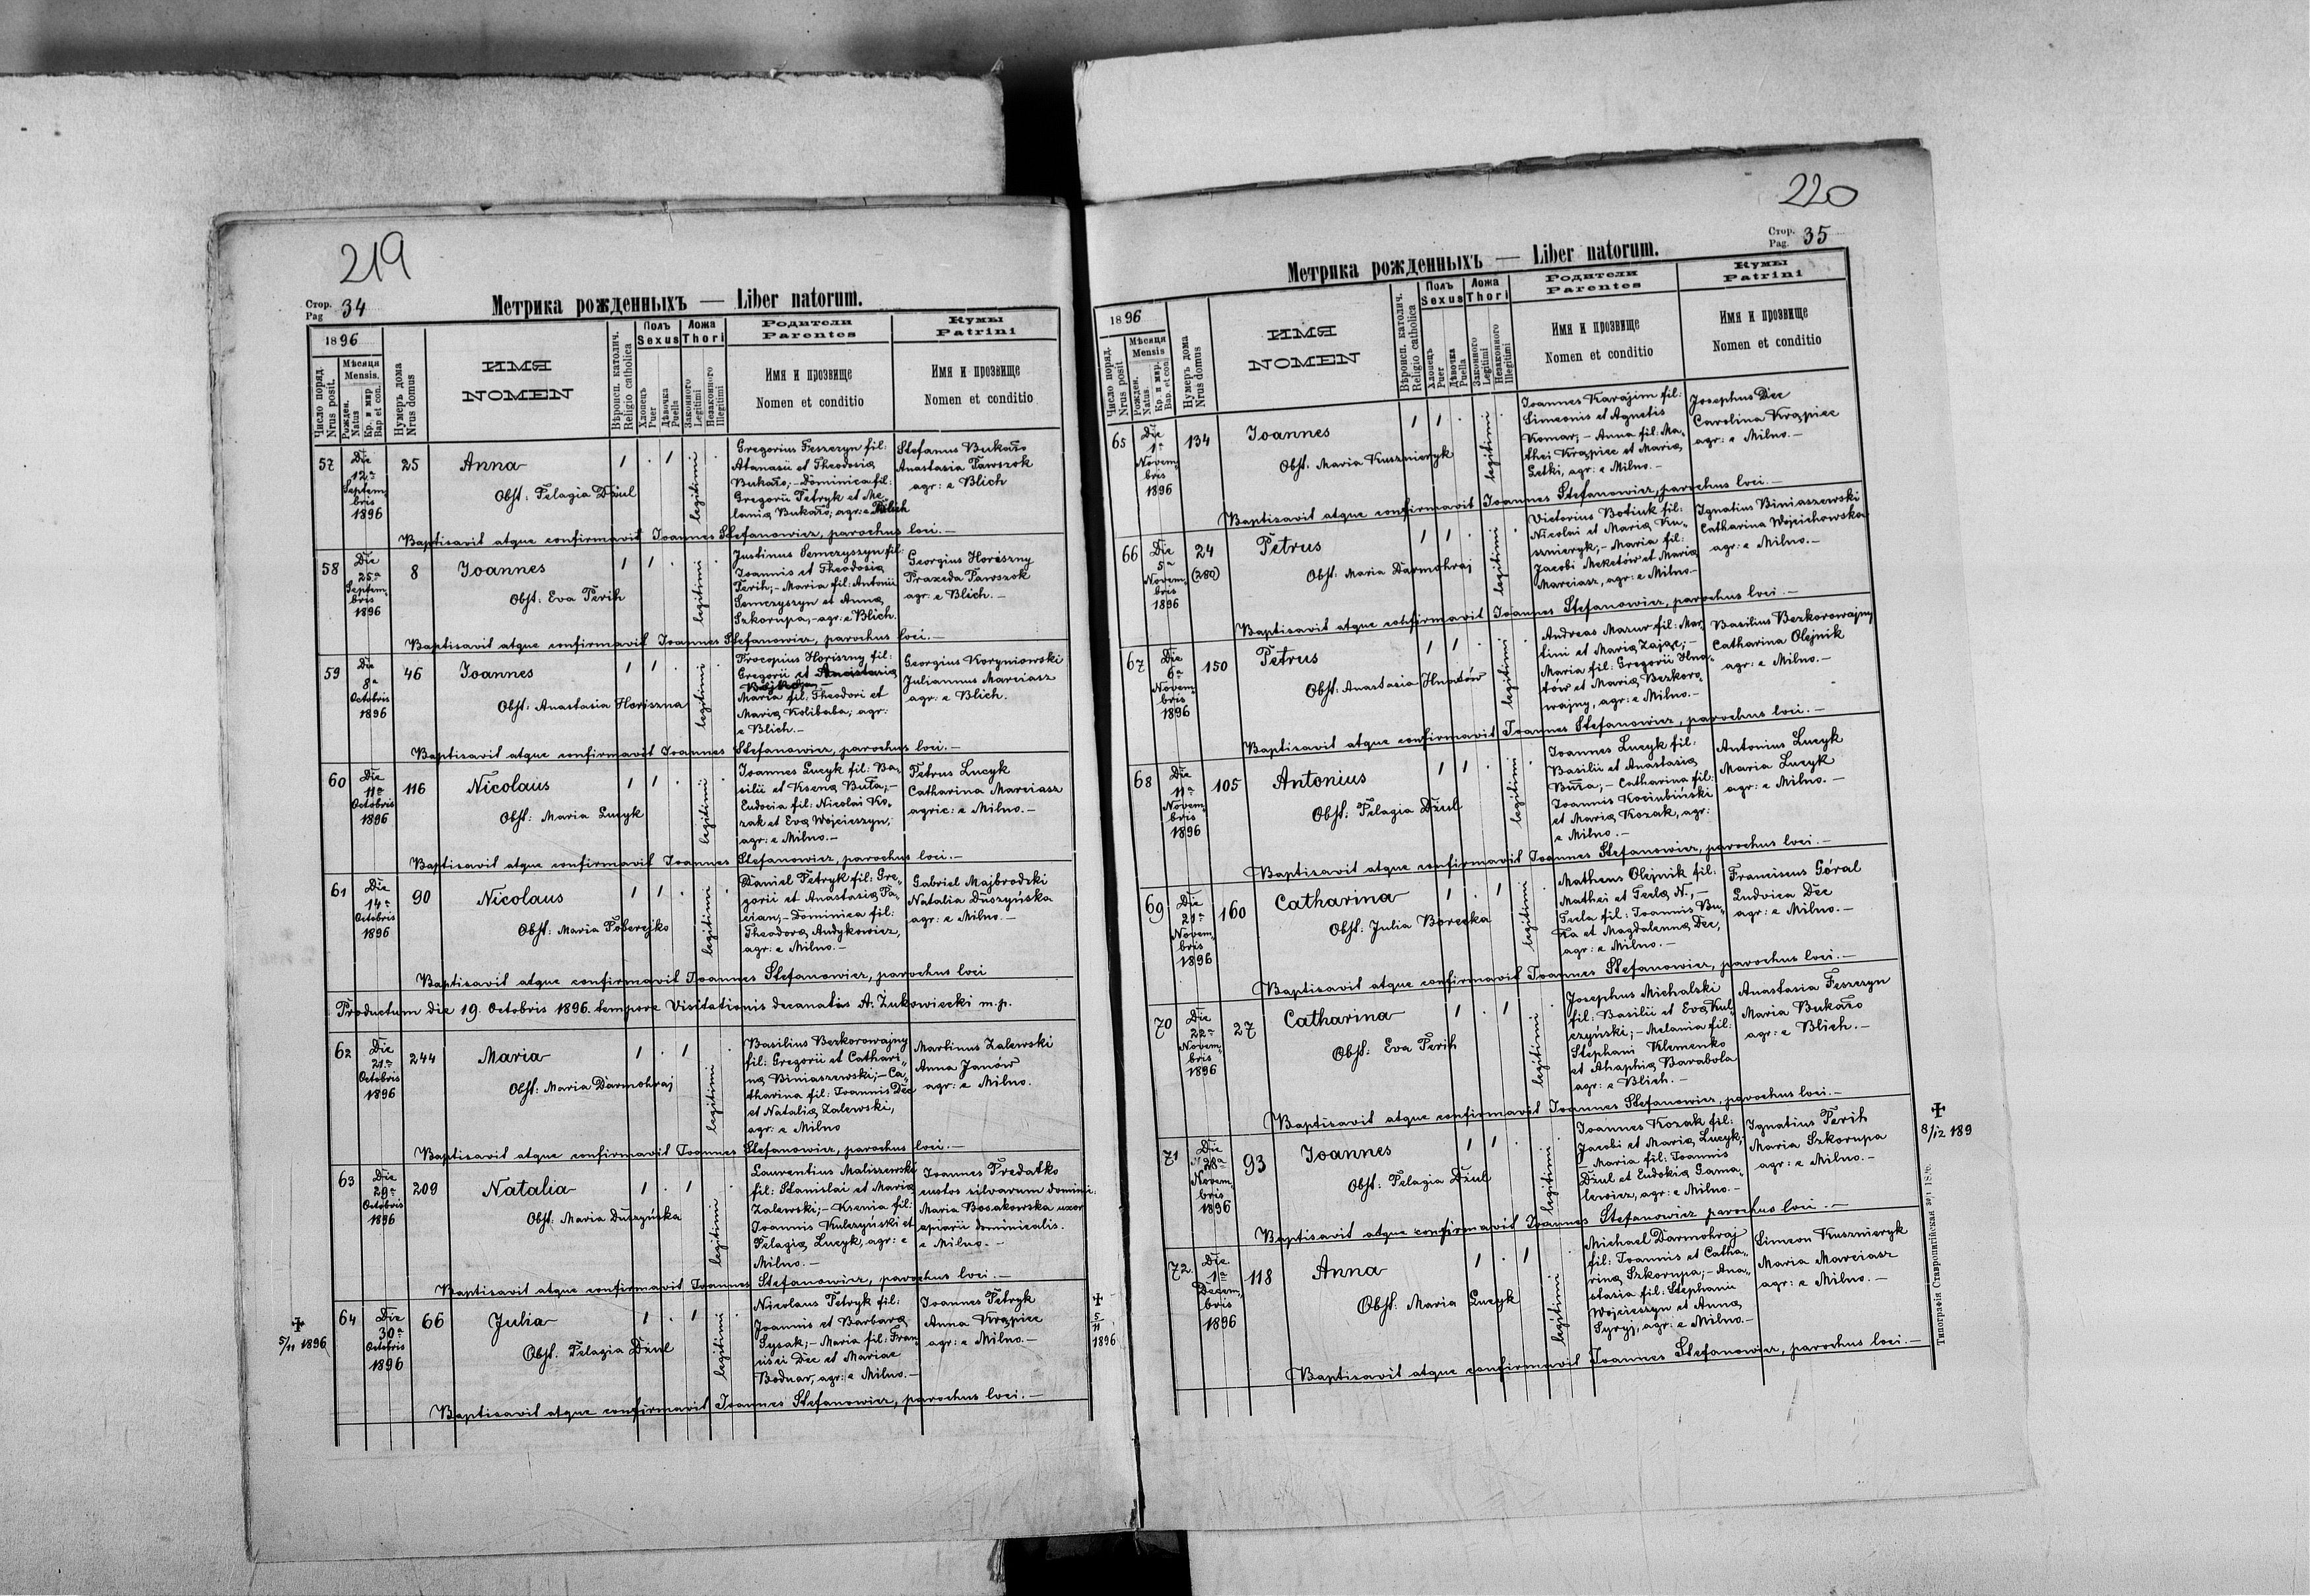 219
Стор. Pag 34
Метрика рожденныхъ — Liber natorum.
1896
Число поряд. Nrus posit.
Мѣсяця Mensis.
Рожден. Natus
Кр. и мир Bap et con.
Нумеръ дома Nrus domus
ИМЯ
NOMEN
Вѣроисп. католич. Religio catholica
Полъ Sexus
Хлопецъ Puer
Дѣвочка Puella
Ложа Thori
Законного Legitimi
Незаконного Illegitimi
Родители
Parentes
Имя и прозвище
Nomen et conditio
Кумы
Patrini
Имя и прозвище
Nomen et conditio
57
Die
12ª
Septem,
bris
1896
25
Anna
Obst: Pelagia Dżul
1 . 1
legitimi
Gregorius Feszczyn fil:
Atanasii et Theodosia
Bukało; - Dominica fil:
Gregorii Petryk et Me,
lania Bukało; agr: e Blich
Stefanus Bukało
Anastasia Pawszok
agr: e Blich
Baptisavit atque confirmavit Joannes Stefanowicz, parochus loci. —
58
Die
25ª
Septem,
bris
1896
8
Joannes
Obst: Eva Perih
1 1 .
legitimi
Justinus Semczyszyn fil:
Joannis et Theodosia
Perih; - Maria fil: Antonii
Semczyszyn et Anna
Szkorupa, - agr: e Blich.
Georgius Horiszny
Praxeda Pawszok
agr: e Blich. —
Baptisavit atque confirmavit Joannes Stefanowicz, parochus loci. —
59
Die
8ª
Octobris
1896
46
Joannes
Obst: Anastasia Horiszna
1 1 .
legitimi
Procopius Horiszny fil:
Gregorii et Anastasia
Maria fil: Theodori et
Maria Kolibaba; agr:
e Blich. —
Georgius Koryniowski
Juliannus Marciasz
agr: e Blich.
Baptisavit atque confirmavit Joannes Stefanowicz, parochus loci. —
60
Die
11ª
Octobris
1896
116
Nicolaus
Obst: Maria Lucyk
1 1 .
legitimi
Joannes Lucyk fil: Ba,
silii et Ksena Buła; —
Eudocia fil: Nicolai Ko,
zak et Eva Wojcieszyn,
agr: e Milno. —
Petrus Lucyk
Catharina Marciasz
agric: e Milno. —
Baptisavit atque confirmavit Joannes Stefanowicz, parochus loci. —
61
Die
14ª
Octobris
1896
90
Nicolaus
Obst: Maria Poberejko
1 1 .
legitimi
Daniel Petryk fil: Gre,
gorii et Anastasia Pa,
cian, - Dominica fil:
Theodora Andykowicz,
agr: e Milno. —
Gabriel Majbrodski
Natalia Duszyńska
agr: e Milno. —
Baptisavit atque confirmavit Joannes Stefanowicz, parochus loci
Productum die 19. Octobris 1896. tempore Visitationis decanatûs A. Żukowiecki m. p.
62
Die
21ª
Octobris
1896
244
Maria
Obst: Maria Darmohraj
1 . 1
legitimi
Basilius Bezkorowajny
fil: Gregorii et Cathari,
na Biniaszewski; — Ca,
tharina fil: Joannis Dec
et Natalia Zalewski,
agr: e Milno
Martinus Zalewski
Anna Janów
agr: e Milno.
Baptisavit atque confirmavit Joannes Stefanowicz, parochus loci. —
63
Die
29ª
Octobris
1896
209
Natalia
Obst: Maria Duszyńska
1 . 1
legitimi
Laurentius Maliszewski
fil: Stanislai et Maria
Zalewski; - Ksenia fil:
Joannis Kulczyński et
Pelagia Lucyk, agr: e
Milno. —
Joannes Predatko
custos silvarum domini:
Maria Bosakowska uxor
apiarii dominicalis.
e Milno. —
Baptisavit atque confirmavit Joannes Stefanowicz, parochus loci. —
✠
5/11 1896
64
Die
30ª
Octobris
1896
66
Julia
Obst. Pelagia Dżul
1 . 1
legitimi
Nicolaus Petryk fil:
Joannis et Barbara
Sysak; - Maria fil: Fran,
cisci Dec et Mariae
Bodnar, agr: e Milno. —
Joannes Petryk
Anna Krąpiec
agr: e Milno. —
✠
5
11
1896
Baptisavit atque confirmavit Joannes Stefanowicz, parochus loci. —
220
Стор. Pag. 35
Метрика рожденныхъ — Liber natorum.
1896
Число поряд. Nrus posit
Мѣсяця Mensis
Рожден. Natus.
Кр. и мир. Bap. et con.
Нумеръ дома Nrus domus
ИМЯ
NOMEN
Вѣроисп. католич. Religio catholica
Полъ Sexus
Хлопецъ Puer
Дѣвочка Puella
Ложа Thori
Законного Legitimi
Незаконного Illegitimi
Родители
Parentes
Имя и прозвище
Nomen et conditio
Кумы
Patrini
Имя и прозвище
Nomen et conditio
65
Die
1ª
Novem,
bris
1896
134
Joannes
Obst: Maria Kusznieryk
1 1 .
legitimi
Joannes Karajim fil:
Simeonis et Agnetis
Komar; - Anna fil: Ma,
thei Krąpiec et Maria
Getki, agr: e Milno. —
Josephus Dec
Carolina Krąpiec
agr: e Milno. —
Baptisavit atque confirmavit Joannes Stefanowicz, parochus loci. —
66
Die
5ª
Novem,
bris
1896
24
(280)
Petrus
Obst: Maria Darmohraj
1 1 .
legitimi
Victorius Botiuk fil:
Nicolai et Maria Ku,
sznieryk; - Maria fil:
Jacobi Meketów et Maria
Marciasz, agr: e Milno. —
Ignatius Biniaszewski
Catharina Wojcichowska
agr: e Milno. —
Baptisavit atque confirmavit Joannes Stefanowicz, parochus loci. —
67
Die
6ª
Novem,
bris
1896
150
Petrus
Obst: Anastasia Hnatów
1 1 .
legitimi
Andreas Mazur fil: Mar,
tini et Maria Zając; —
Maria fil: Gregorii Hna,
tów et Maria Bezkoro,
wajny, agr: e Milno. —
Basilius Bezkorowajny
Catharina Olejnik
agr: e Milno. —
Baptisavit atque confirmavit Joannes Stefanowicz, parochus loci. —
68
Die
11ª
Novem,
bris
1896
105
Antonius
Obst: Pelagia Dżul
1 1 .
legitimi
Joannes Lucyk fil:
Basilii et Anastasia
Buła; - Catharina fil:
Joannis Kociubiński
et Maria Kozak, agr:
e Milno. —
Antonius Lucyk
Maria Lucyk
agr: e Milno. —
Baptisavit atque confirmavit Joannes Stefanowicz, parochus loci. —
69
Die
21ª
Novem,
bris
1896
160
Catharina
Obst: Julia Borecka
1 . 1
legitimi
Matheus Olejnik fil:
Mathei et Tecla N., —
Tecla fil: Joannis Bu,
ła et Magdalenna Dec,
agr: e Milno. —
Franciscus Góral
Ludvica Dec
agr: e Milno. —
Baptisavit atque confirmavit Joannes Stefanowicz, parochus loci. —
70
Die
22ª
Novem,
bris
1896
27
Catharina
Obst: Eva Perih
1 . 1
legitimi
Josephus Michalski
fil: Basilii et Eva Kul,
czyński; - Melania fil:
Stephani Klemenko
et Ahaphia Barabola
agr: e Blich. —
Anastasia Feszczyn
Maria Bukało
agr: e Blich. —
Baptisavit atque confirmavit Joannes Stefanowicz, parochus loci. —
71
Die
28ª
Novem,
bris
1896
93
Joannes
Obst: Pelagia Dżul
1 1 .
legitimi
Joannes Kozak fil:
Jacobi et Maria Lucyk;
— Maria fil: Joannis
Dżul et Eudokia Gama,
lewicz, agr: e Milno. —
Ignatius Perih
Maria Szkorupa
agr: e Milno. —
✠
8/12 189
Baptisavit atque confirmavit Joannes Stefanowicz parochus loci. —
72
Die
1ª
Decem,
bris
1896
118
Anna
Obst: Maria Lucyk
1 . 1
legitimi
Michael Darmohraj
fil: Joannis et Catha,
rina Szkorupa; - Ana,
stasia fil: Stephani
Wojcieszyn et Anna
Syryj, agr: e Milno. —
Simeon Kusznieryk
Maria Marciasz
agr: e Milno. —
Baptisavit atque confirmavit Joannes Stefanowicz, parochus loci. —
Типографія Ставропигійская